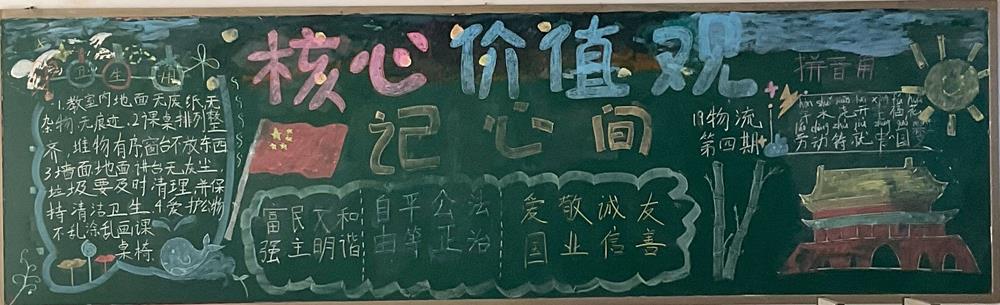 卫生角
1.教室内地面无灰纸无
杂物.无痕迹.2课桌排列整
齐,堆物有序窗台不放东西
3墙面地面讲台无灰尘,
垃圾要及时清理并保
持清洁卫生.4爱护公物
不乱涂乱画课
桌椅.
核心价值观
记心间
富民文和
强主明谐
自平公法
由等正治
爱敬诚友
国业信善
11物流
第四期
拼音角